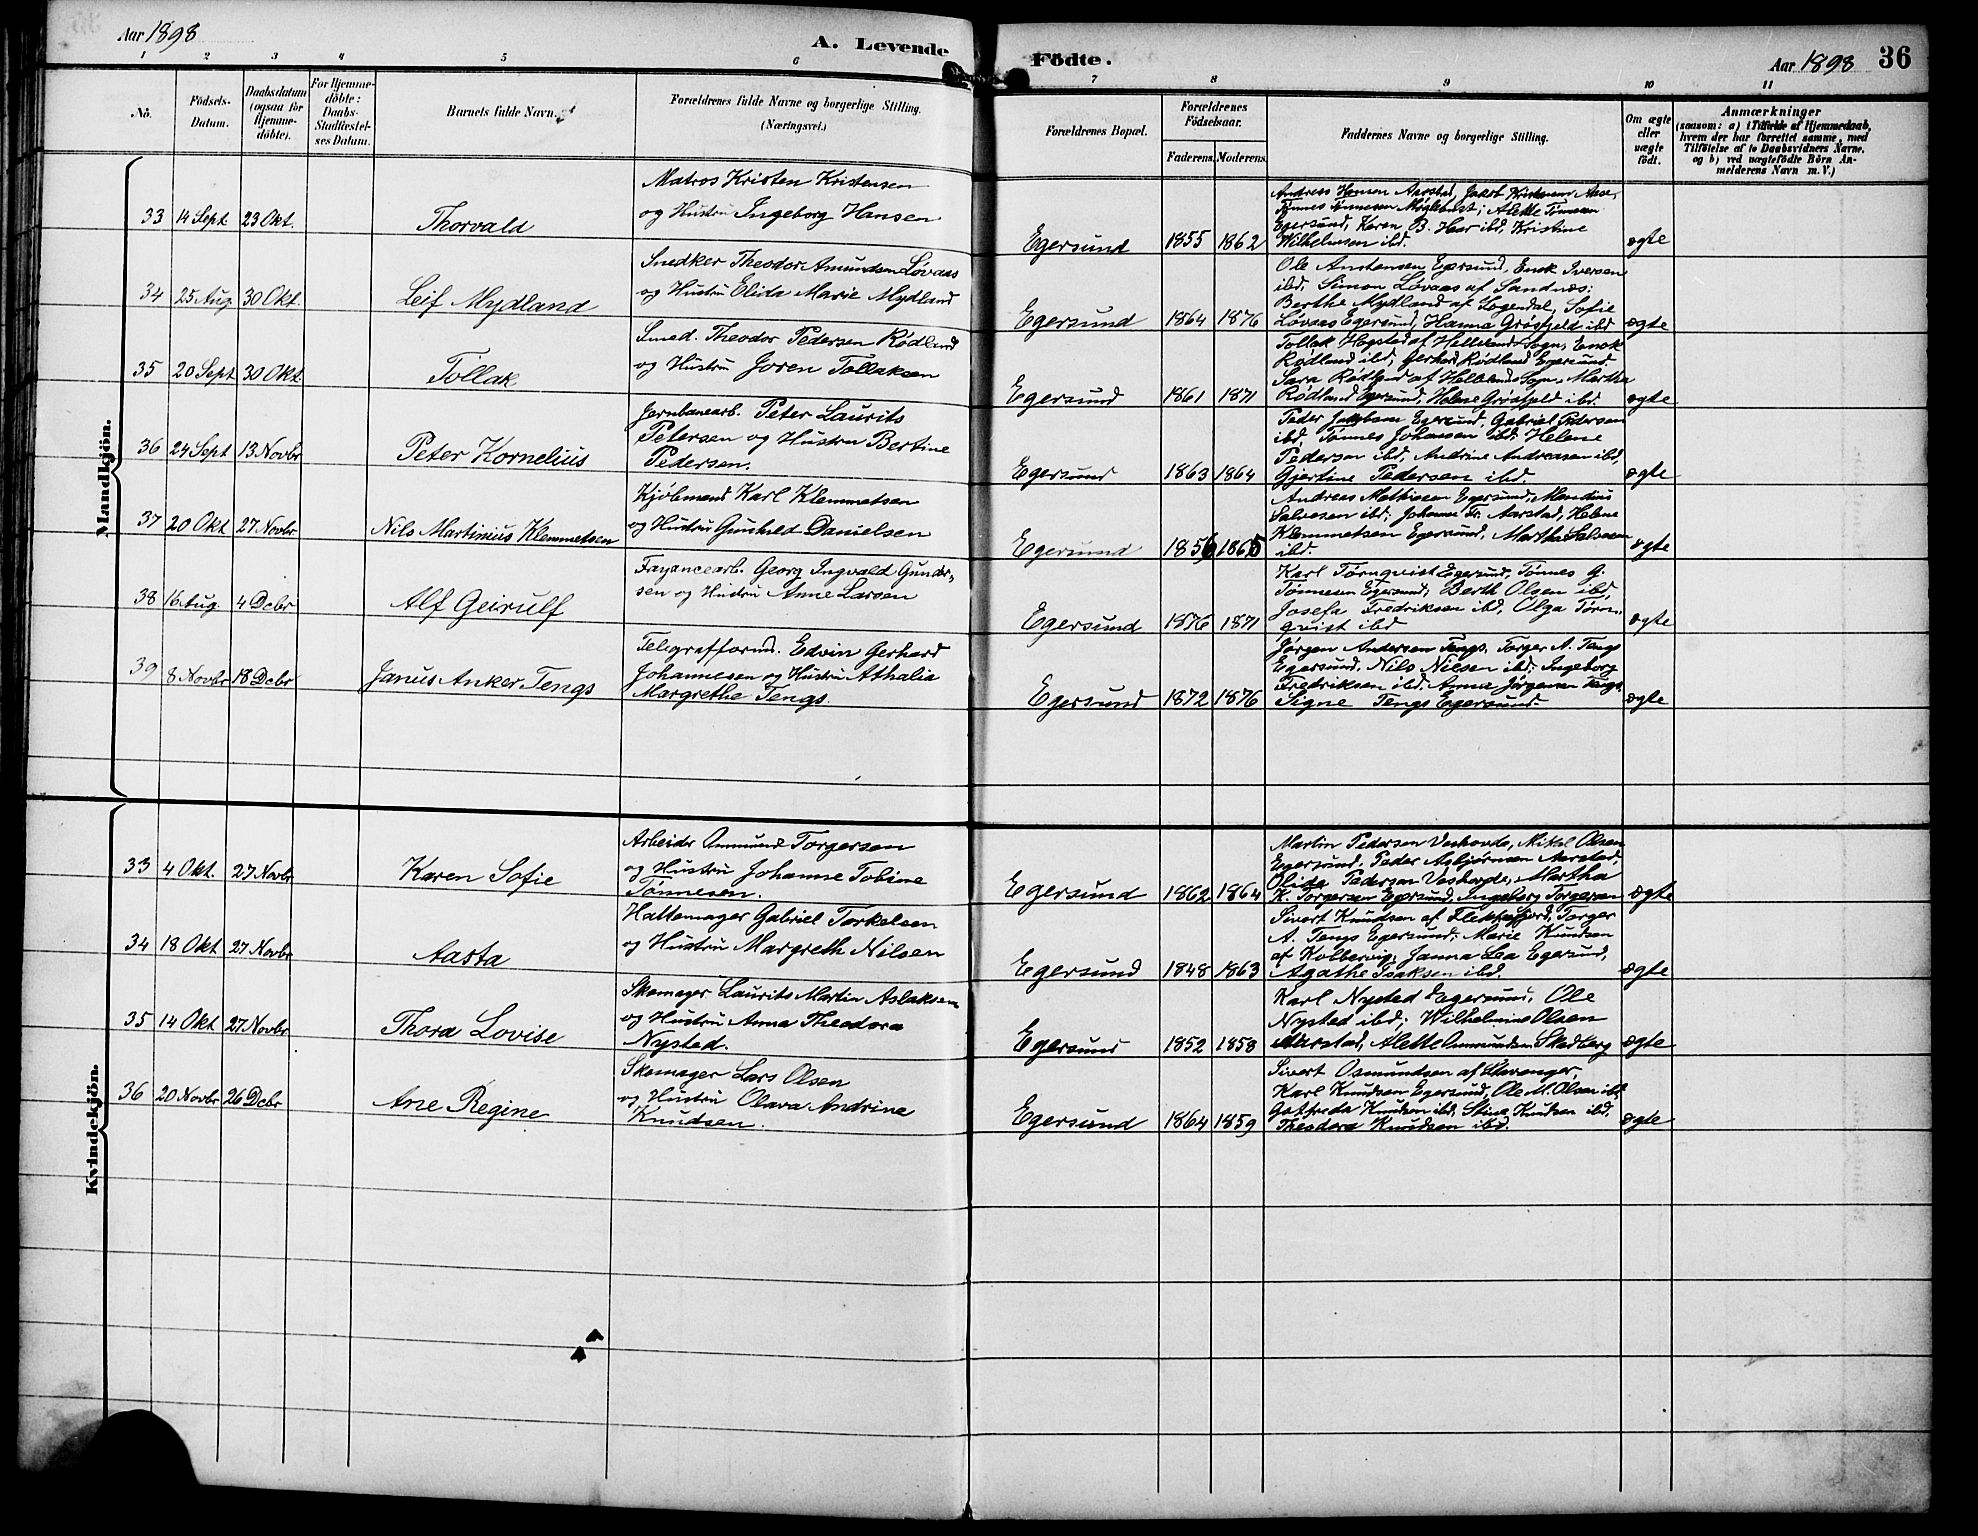 Aar 1898
A. Levende
1 2 3 4 5 6
No.
Födsels-
Datum.
Daabsdatum
(ogsaa för
Hjemme-
döbte).
For Hjemme-
döbte:
Daabs-
Stadfæstel-
ses Datum.
Barnets fulde Navn.
Forældrenes fulde Navne og borgerlige Stilling.
(Næringsvei.)
Mandkjön.
33 14 Sept 23 Okt. Thorvald
Matros Kristen Kristensen
og Hustru Ingeborg Hansen
34 25 Aug 30 Okt. Leif Mydland
Snedker Theodor Amundsen Løvaas
og Hustru Elida Marie Mydland
35 20 Sept 30 Okt. Tollak
Smed. Theodor Pedersen Rødland
og Hustru Joren Tollaksen
36 24 Sept 13 Novbr Peter Kornelius
Jernbanearb. Peter Laurits
Petersen og Hustru Bertine
Pedersen.
37 20 Okt 27 Novbr Nils Martinius Klemmetsen
Kjøbmand Karl Klemmetsen
og Hustru Gunhild Danielsen
38 16 Aug. 4 Dcbr Alf Geirulf
Fayancearb. Georg Ingvald Gunder-
sen og Hustru Anne Larsen
39 8 Novbr 18 Dcbr Janus Anker Tengs
Telegrafformd. Edvin Gerhard
Johannesen og Hustru Atthalia
Margrethe Tengs.
Kvindekjön.
33 4 Okt. 27 Novbr Karen Sofie
Arbeider Ommund Torgersen
og Hustru Johanne Tobine
Tønnesen.
34 18 Okt 27 Novbr Aasta
Hattemager Gabriel Torkelsen
og Hustru Margreth Nilsen
35 14 Okt 27 Novbr Thora Lovise
Skomager Laurits Martin Aslaksen
og Hustru Anna Theodora
Nysted.
36 20 Novbr 26 Dcbr Ane Regine
Skomager Lars Olsen
og Hustru Olava Andrine
Knudsen.
Födte.
Aar 1898 36
7 8 9 10 11
Forældrenes Bopæl.
Forældrenes
Födselsaar.
Faderens. Moderens.
Faddernes Navne og borgerlige Stilling.
Om ægte
eller
uægte
födt.
Anmærkninger
(saasom: a) i Tilfælde af Hjemmedaab,
hvem der har forrettet samme, med
Tilföielse af to Daabsvidners Navne.
og b) ved uægtefödte Börn An-
melderens Navn m. V.)
Andreas Hansen Aarstad, Jakob Kristensen Aase,
Tønnes Tønnesen Møglebust; Alette Tønnesen
Egersund, Karen B. Haar ibd, Kristine
Egersund 1855 1862 Wilhelmsen ibd. ægte
Ole Anstensen Egersund, Enok Iversen
ibd, Simon Løvaas af Sandnæs;
Berthe Mydland af Sogendal, Sofie
Egersund 1864 1876 Løvaas Egersund, Hanna Grøsfjeld ibd ægte
Tollak Hegstad af Hellelands Sogn, Enok
Rødland ibd, Gerhard Rødland Egersund.
Sara Rødland af Hellelands Sogn, Martha
Egersund 1861 1871 Rødland Egersund, Helene Grøsfjeld ibd. ægte
Peder Jakobsen Egersund, Gabriel Pedersen
ibd, Tønnes Johansen ibd; Helene
Pedersen ibd, Andrine Andreasen ibd,
Egersund 1863 1864 Gjertine Pedersen ibd. ægte
Andreas Mathissen Egersund, Mandius
Salvesen ibd; Johanne Fr. Aarstad, Helene
Klemmetsen Egersund, Martha Salvesen
Egersund 1856 1865 ibd. ægte
Karl Tørnqvist Egersund, Tønnes G.
Tønnesen Egersund, Berth Olsen ibd,
Josefa Fredriksen ibd, Olga Tørn-
Egersund 1876 1871 qvist ibd ægte
Jørgen Andersen Tengs, Torger A. Tengs
Egersund, Nils Nilsen ibd; Ingeborg
Fredriksen ibd, Anna Jørgensen Tengs,
Egersund 1872 1876 Signe Tengs Egersund. ægte
Martin Pedersen Veshovde, Mikal Olsen
Egersund, Peder Asbjørnsen Aarstad,
Olide Pedersen Veshovde, Martha
Egersund 1862 1864 K. Torgersen Egersund, Ingeborg Torgersen ægte
Sivert Knudsen af Flekkefjord, Torger
A. Tengs Egersund; Marie Knudsen
af Kolberug, Janna Lea Egersund,
Egersund 1848 1863 Agathe Isaksen ibd. ægte
Karl Nysted Egersund, Ole
Nysted ibd; Wilhelmine Olsen
Egersund 1852 1858 Aarstad, Alette Ommundsen Skadberg ægte
Sivert Osmundsen af Stavanger,
Karl Knudsen Egersund, Ole M. Olsen ibd,
Gotfreda Knudsen ibd, Stine Knudsen ibd,
Egersund 1864 1859 Theodora Knudsen ibd. ægte